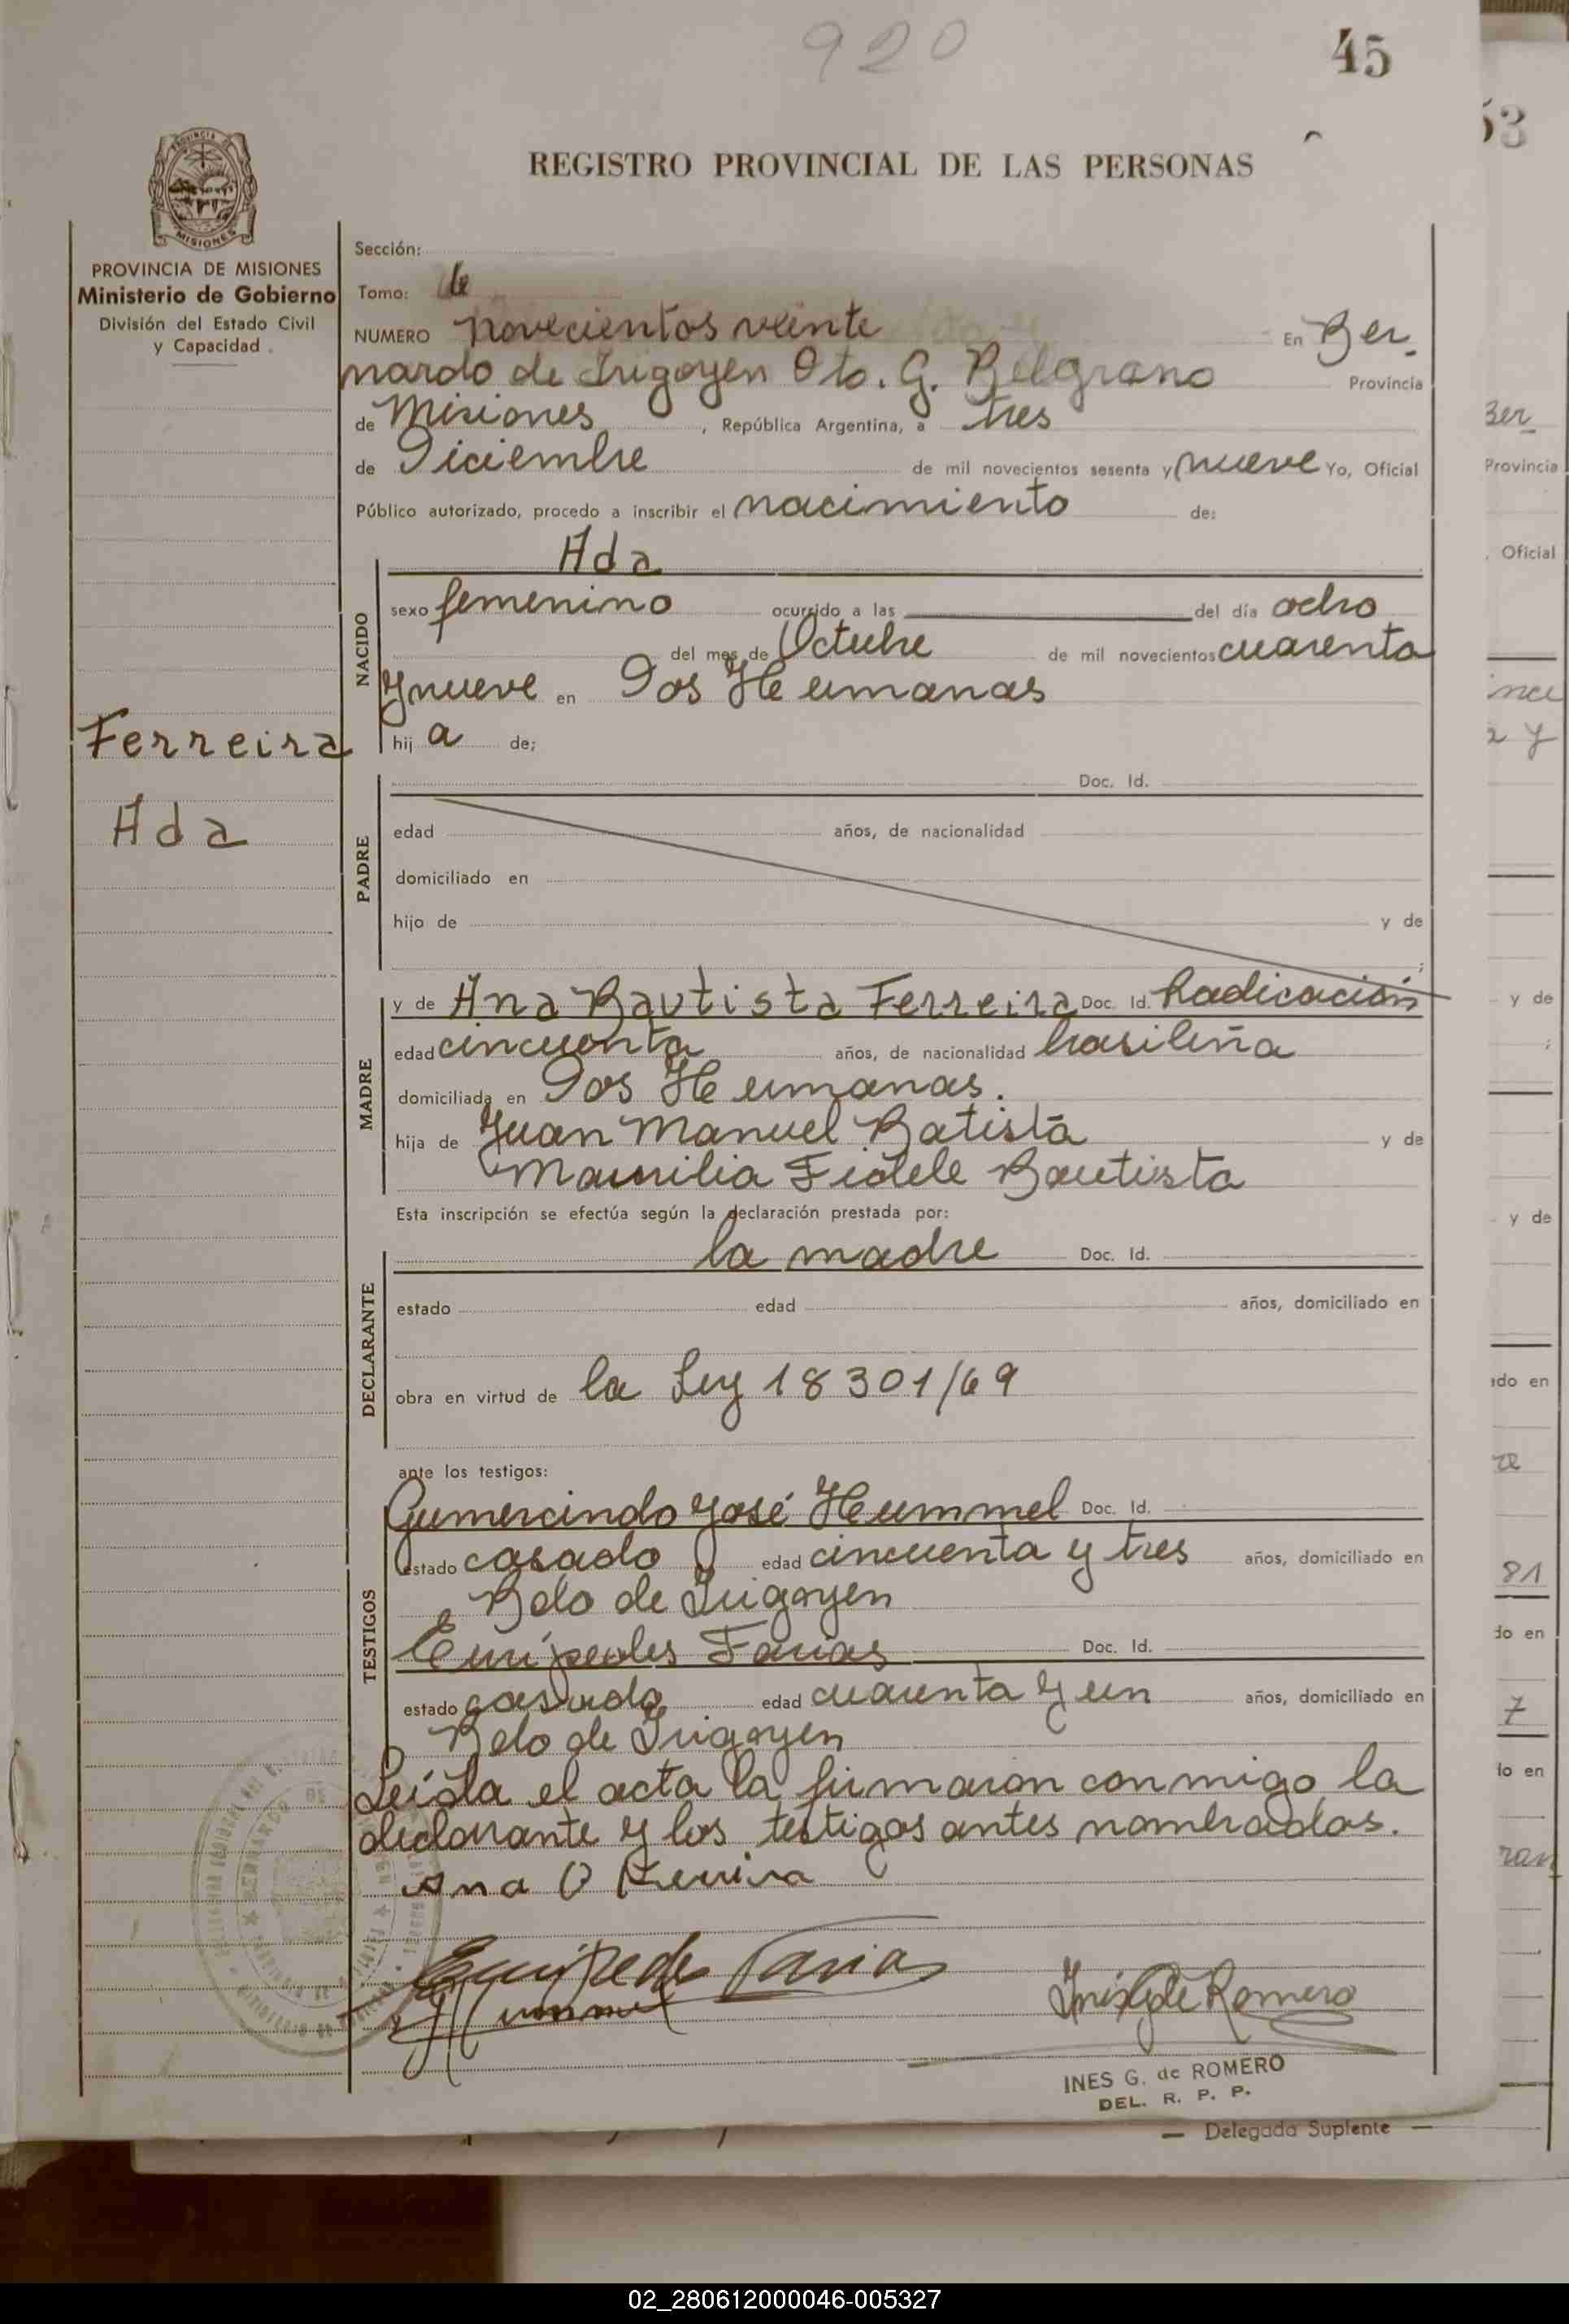 920
45
53
REGISTRO PROVINCIAL DE LAS PERSONAS
MISIONES
PROVINCIA DE MISIONES
Ministerio de Gobierno
División del Estado Civil
y Capacidad
Sección:
Tomo:
NUMERO novecientos veinte En Ber
nardo de Irigoyen Dto. G. Belgrano Provincia
de Misiones, República Argentina, a tres
de Diciembre de mil novecientos sesenta y nueve Yo, Oficial
Público autorizado, procedo a inscribir el nacimiento de:
Ada
NACIDO
sexo femenino ocurrido a las del día ocho
del mes de Octubre de mil novecientos cuarenta
y nueve en Dos Hermanas
hij a de;
Ferreira
Ada
PADRE
Doc. Id.
edad años, de nacionalidad
domiciliado en
hijo de y de
MADRE
y de Ana Bautista Ferreira Doc. Id. Radicación
edad cincuenta años, de nacionalidad brasileña
domiciliada en Dos Hermanas.
hija de Juan Manuel Batista y de
Maurilia Fidele Bautista
Esta inscripción se efectúa según la declaración prestada por:
DECLARANTE
la madre Doc. Id.
estado edad años, domiciliado en
obra en virtud de la Ley 18301/69
ante los testigos:
TESTIGOS
Gumercindo José Hummel Doc. Id.
estado casado edad cincuenta y tres años, domiciliado en
Bdo de Irigoyen
Eurípedes Farias Doc. Id.
estado casado edad cuarenta y un años, domiciliado en
Bdo de Irigoyen
Leída el acta la firmaron conmigo la
declarante y los testigos antes nombrados.
Ana B Ferreira
Euripedes Farias
Hummel
Inés G de Romero
INES G. de ROMERO
DEL. R. P. P.
— Delegada Suplente —
Ber
Provincia
Oficial
y de
y de
81
do en
7
02_280612000046-005327